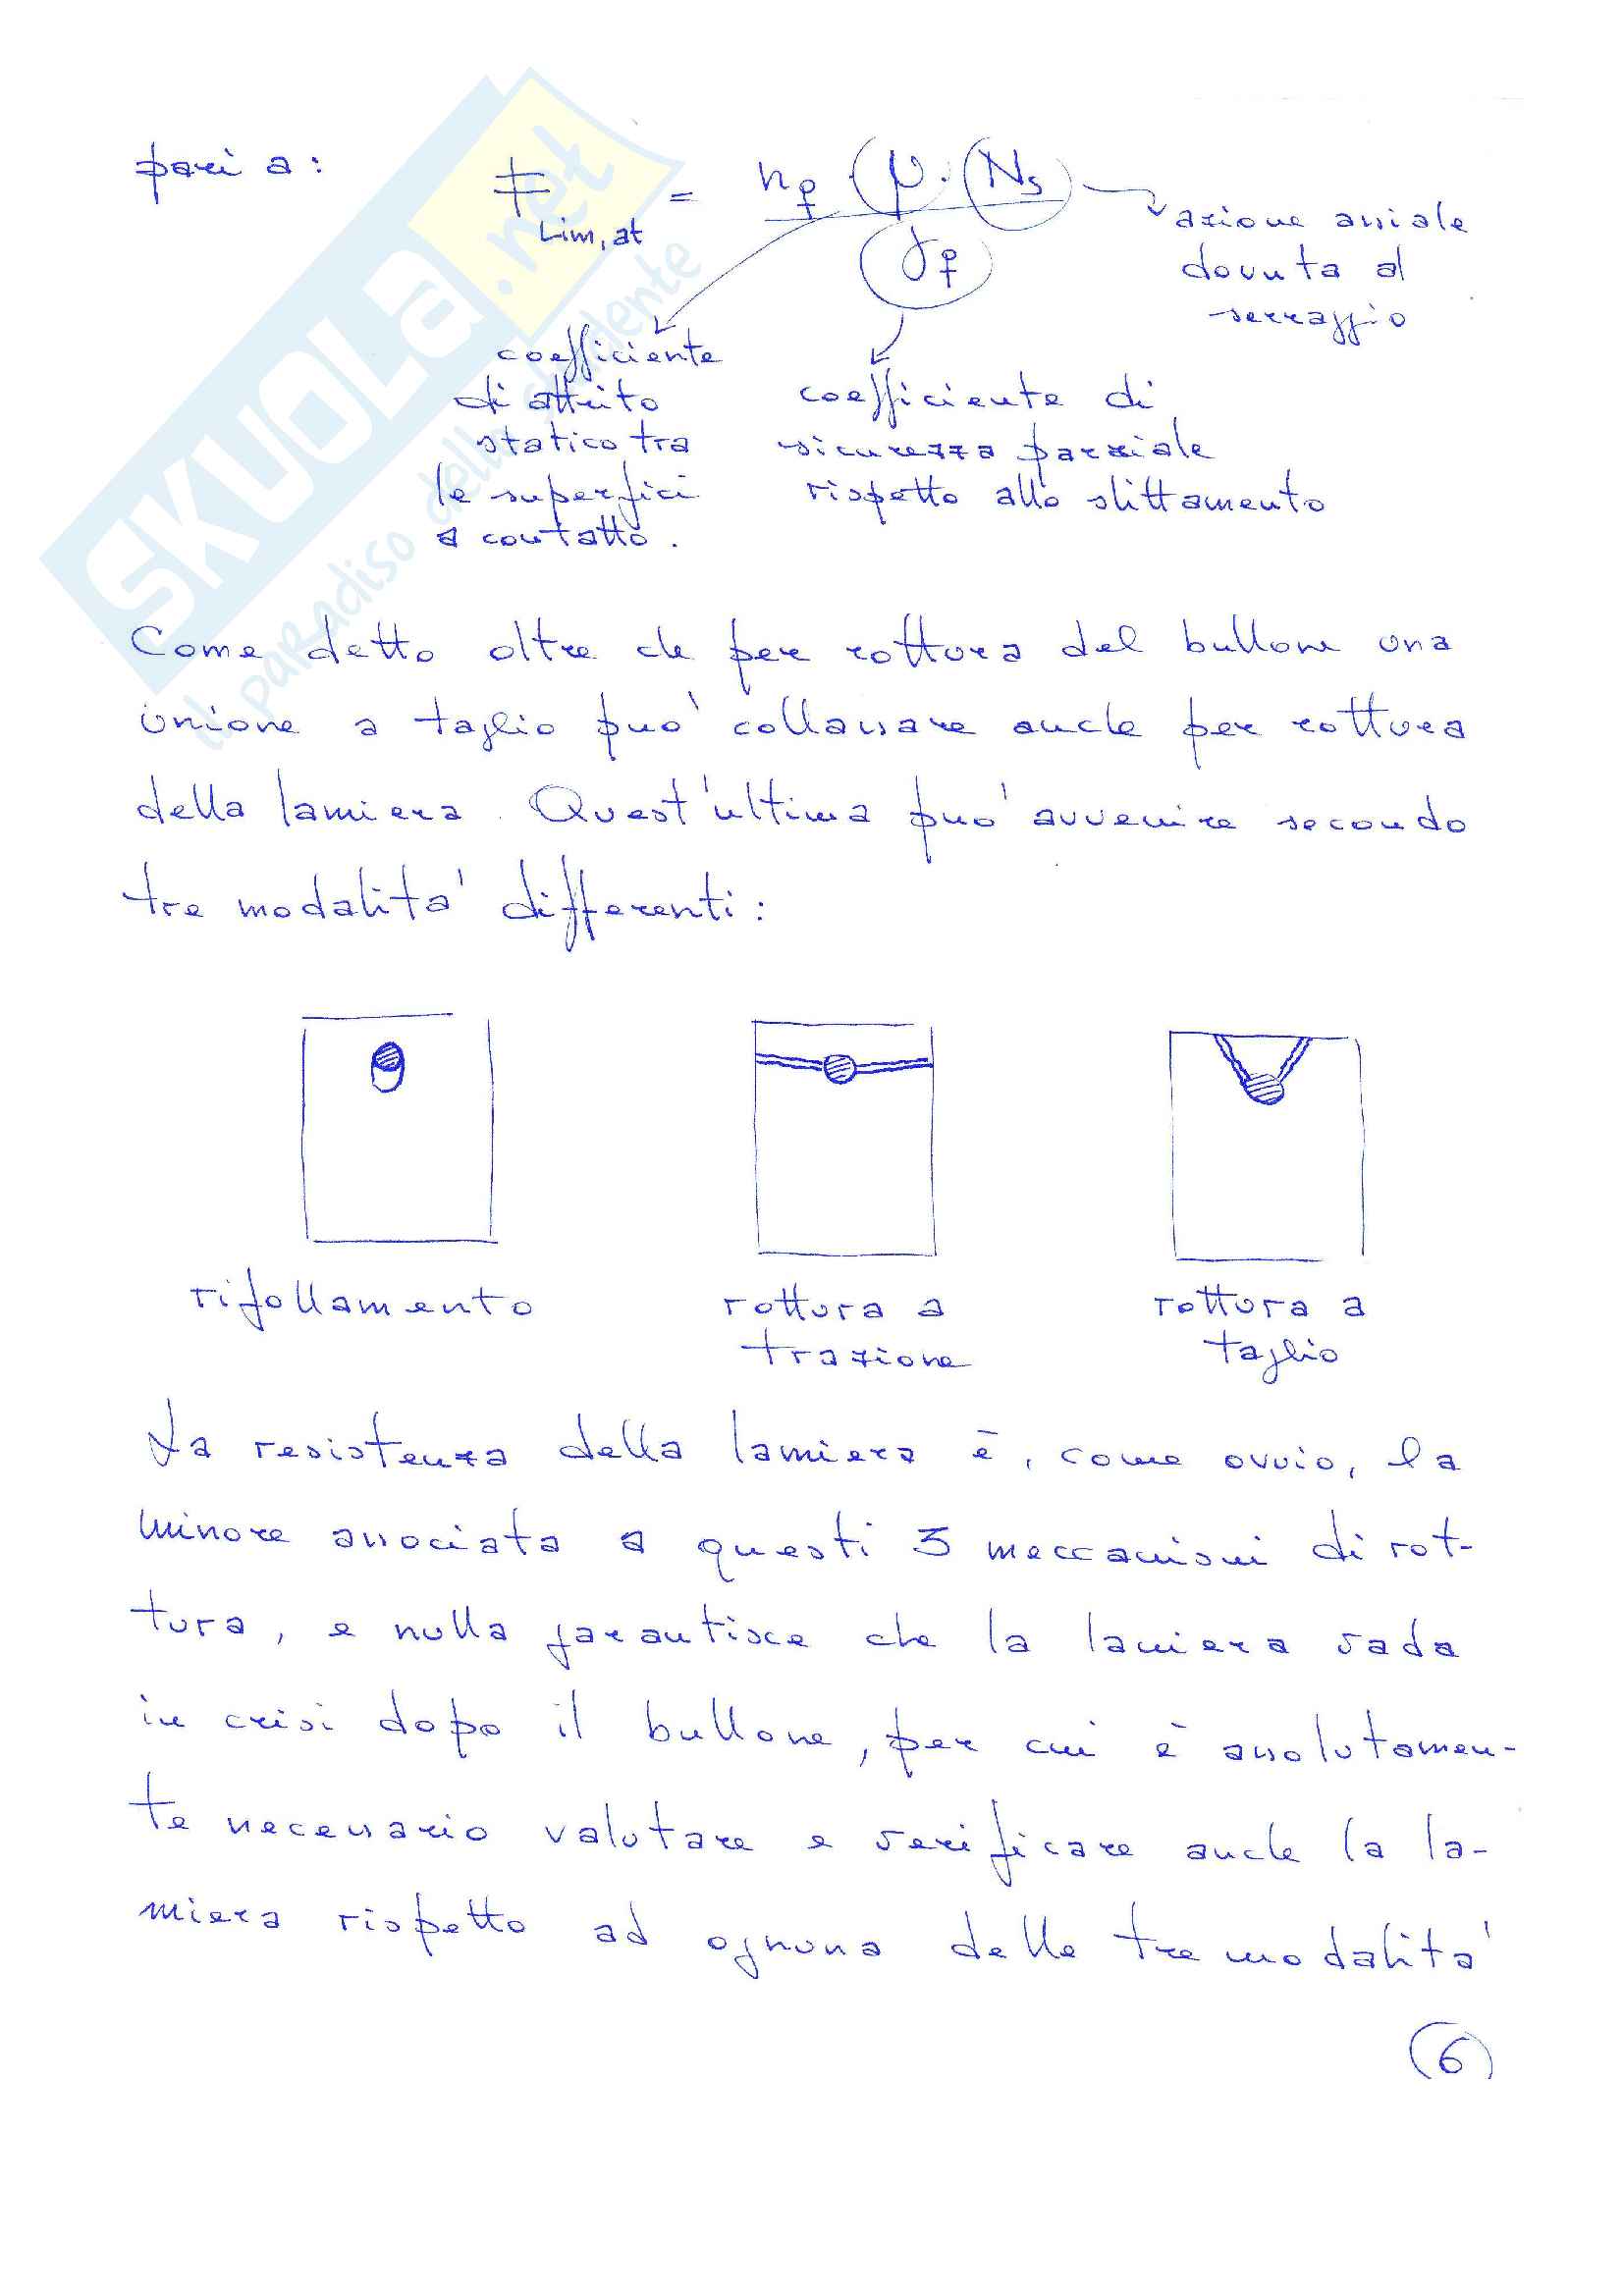 pari a: F Lim, at = n_f · μ · N_s / γ_f
azione assiale
dovuta al
serraggio
coefficiente
di attrito
statico tra
le superfici
a contatto.
coefficiente di
sicurezza parziale
rispetto allo slittamento
Come detto oltre che per rottura del bullone una
unione a taglio può collassare anche per rottura
della lamiera. Quest'ultima può avvenire secondo
tre modalità differenti:
rifollamento
rottura a
trazione
rottura a
taglio
La resistenza della lamiera è, come ovvio, la
minore associata a questi 3 meccanismi di rot-
tura, e nulla garantisce che la lamiera vada
in crisi dopo il bullone, per cui è assolutamen-
te necessario valutare e verificare anche la la-
miera rispetto ad ognuna delle tre modalità
(6)
SKUOLA.net
il paradiso dello studente